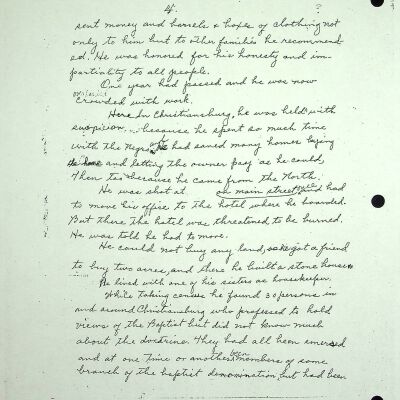 4.
?
sent money and barrels & boxes of clothing not
only to him but to other families he recommend
ed. He was honored for his honesty and im-
partiality to all people.
One year had passed and he was now
crowded with work.
Here in Christiansburg, he was held with
suspicion, because he spent so much time
with the Negro, he had saved many homes buying
the home and letting the owner pay as he could,
Then too because he came from the North.
He was shot at on main street and had
to move his office to the hotel where he boarded.
But there the hotel was threatened to be burned.
He was told he had to move.
He could not buy any land, so he got a friend
to buy two acres, and there he built a stone house
He lived with one of his sisters as housekeeper.
While taking census he found 30 persons in
and around Christiansburg who professed to hold
views of the Baptist but did not know much
about the doctrine. They had all been emersed
and at one time or another been members of some
branch of the baptist denomonation, but had been